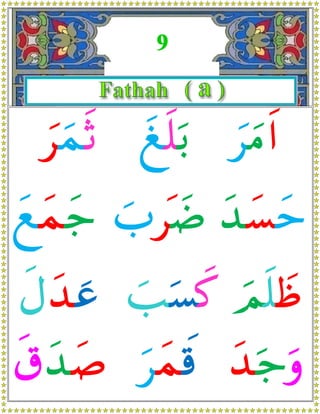 9
Fathah ( a )
اَمَرَ بَلَغَ ثَمَرَ
حَسَدَ ضَرَبَ جَمَعَ
ظَلَمَ كَسَبَ عَدَلَ
وَجَدَ قَمَرَ صَدَقَ